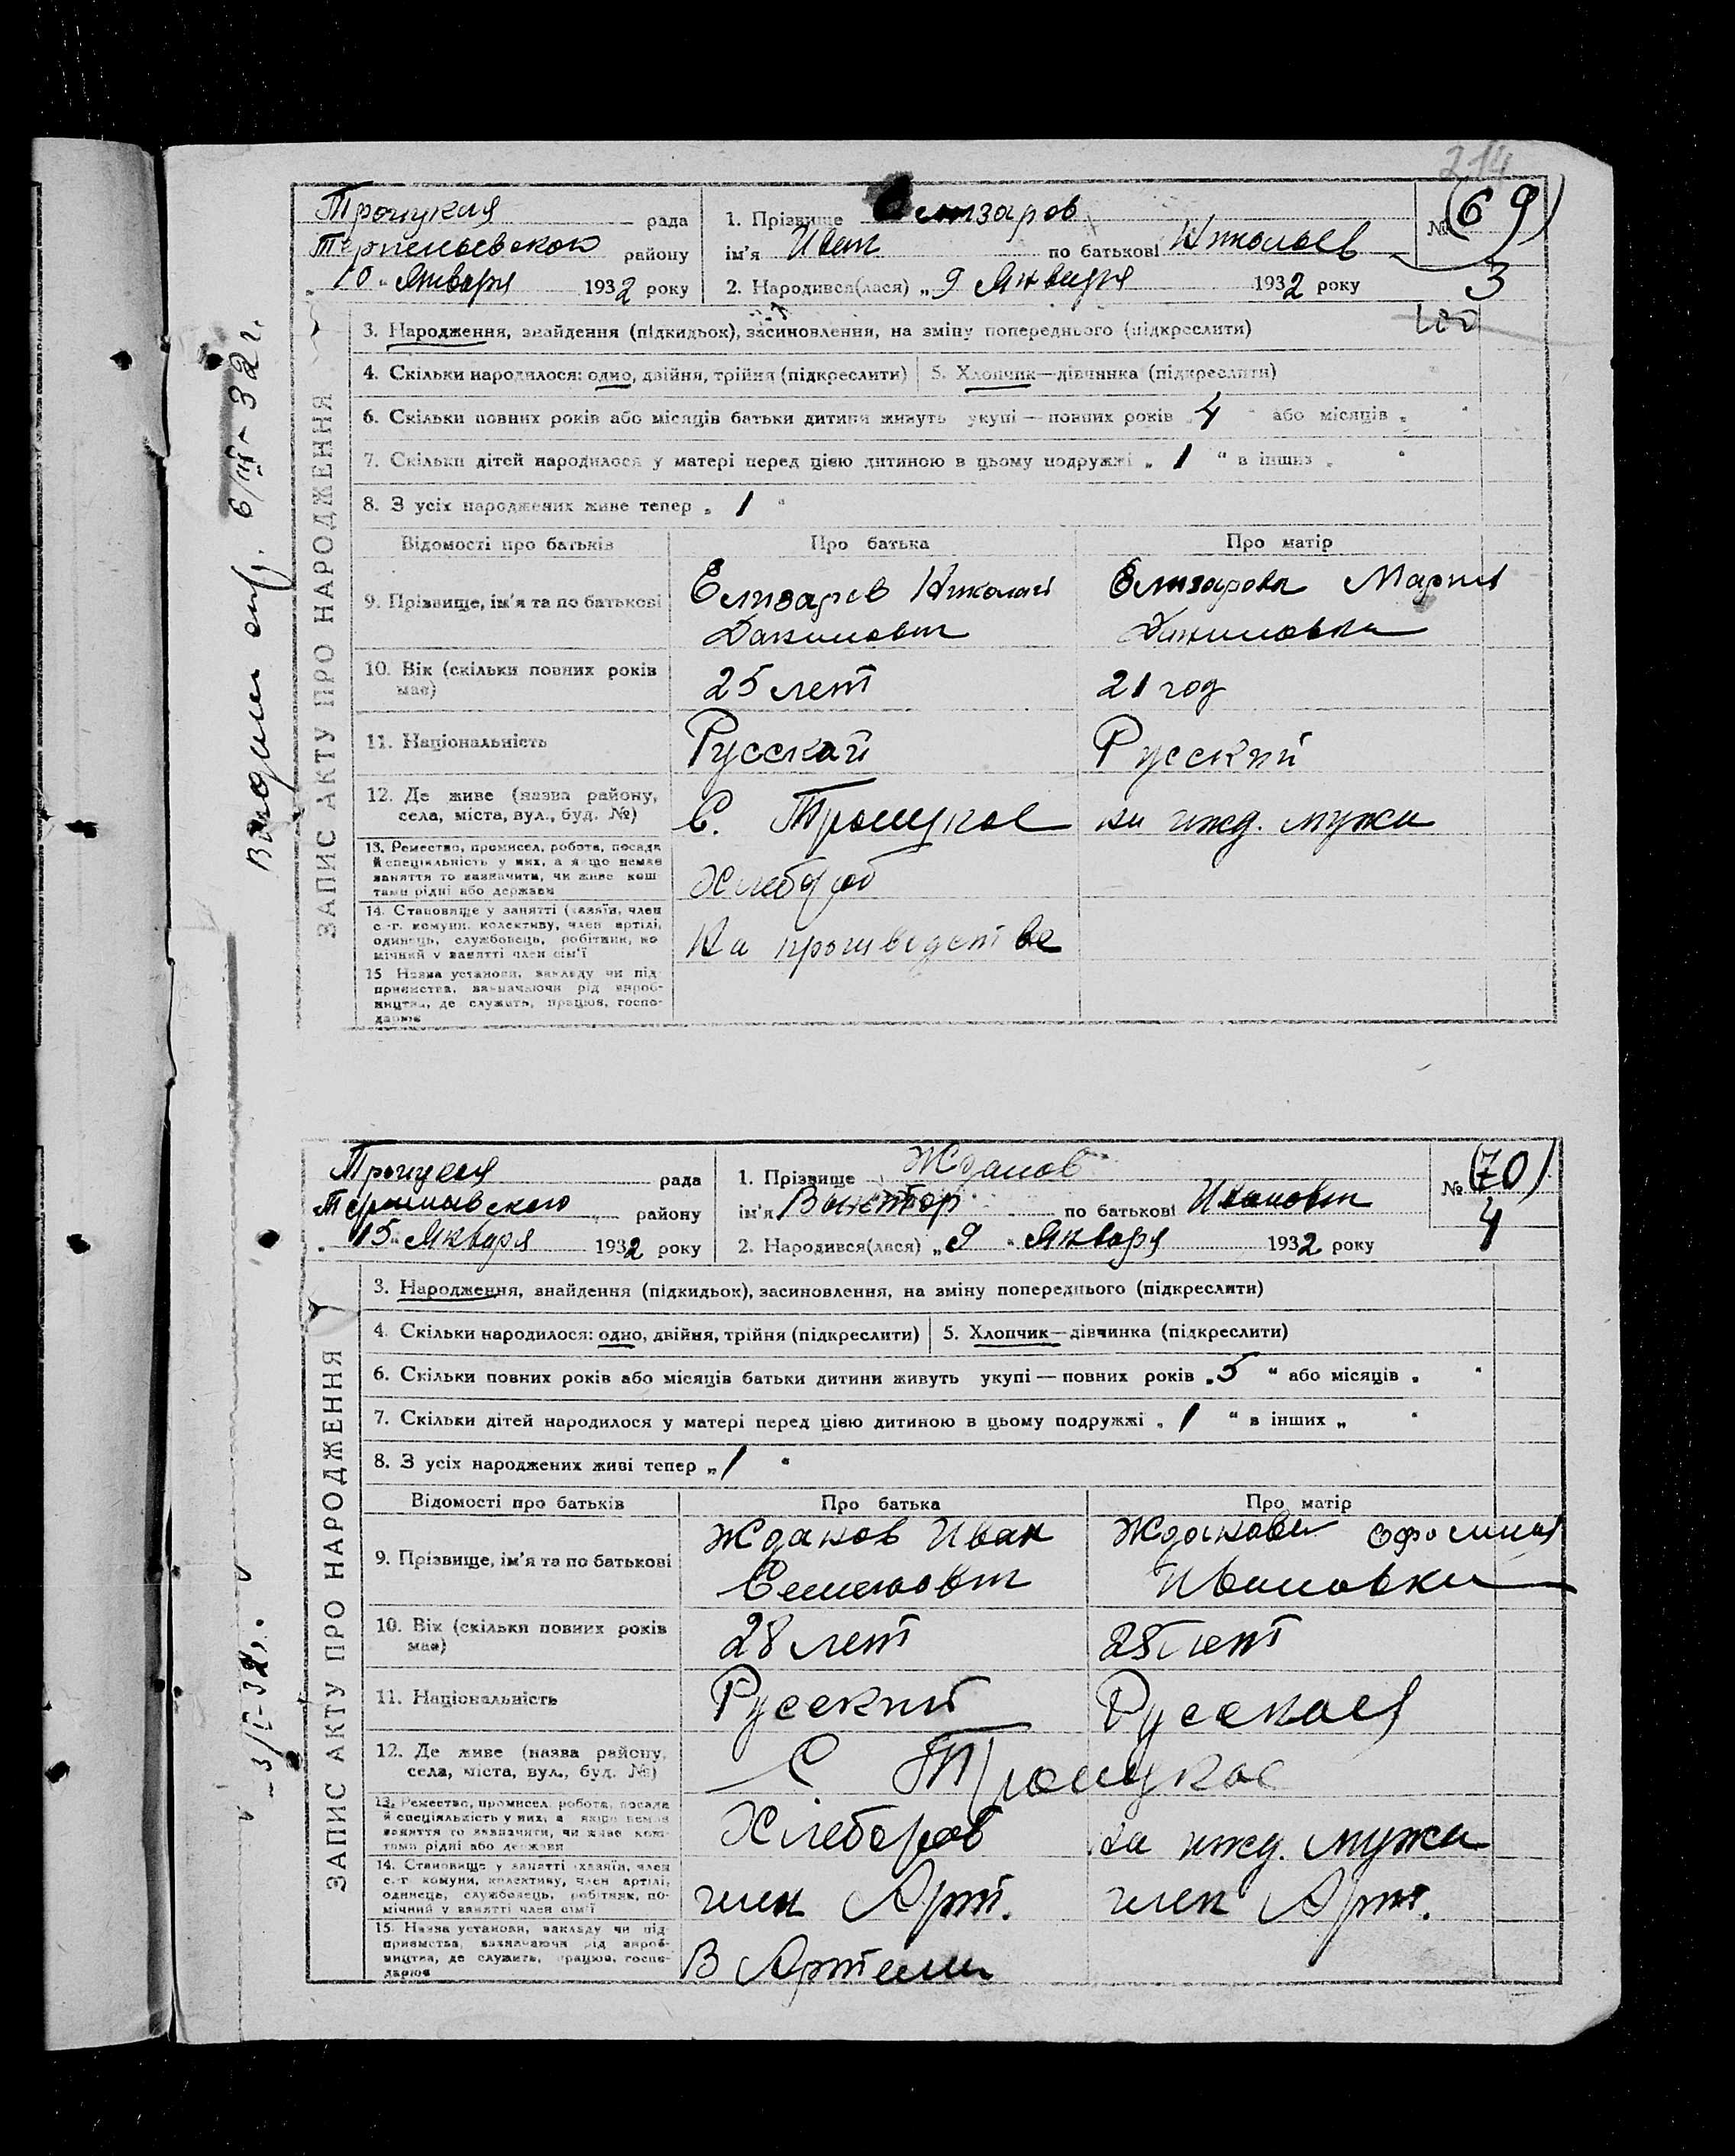 214
Троицкая рада
району
10 Января 1932 року
1. Прізвище Елизаров
ім'я Иван по батькові Николаев
2. Народився(лася) „9 Января 1932 року
№ (69)
3
ЗАПИС АКТУ ПРО НАРОДЖЕННЯ
3. Народження, знайдення (підкидьок), засиновлення, на зміну попереднього (підкреслити)
4. Скільки народилося: одно, двійня, трійня (підкреслити) 5. Хлопчик—дівчинка (підкреслити)
6. Скільки повних років або місяців батьки дитини живуть укупі — повних років „4 “ або місяців „ “
7. Скільки дітей народилося у матері перед цією дитиною в цьому подружжі „ 1 “ в інших „ “
8. З усіх народжених живе тепер „ 1 “
Відомості про батьків Про батька Про матір
9. Прізвище, ім'я та по батькові Елизаров Николай Елизарова Мария
Данилович Даниловна
10. Вік (скільки повних років має) 25 лет 21 год
11. Національність Русский Русский
12. Де живе (назва району, села, міста, вул., буд. №) С. Троицкое на ижд. мужа
13. Ремество, промисел, робота, посада й спеціяльність у них, а якщо немає заняття то зазначити, чи живе коштами рідні або держави Хлебороб
14. Становище у занятті (хазяїн, член с.-г. комуни, колективу, член артілі, одинець, службовець, робітник, помічний у занятті член сім'ї На производстве
15. Назва установи, закладу чи підприємства, зазначаючи рід виробництва, де служить, працює, господарює
6/III-32 г.
Троицкая рада
району
15 Января 1932 року
1. Прізвище Жданов
ім'я Виктор по батькові Иванович
2. Народився(лася) „9 “ Января 1932 року
№ (70)
4
ЗАПИС АКТУ ПРО НАРОДЖЕННЯ
3. Народження, знайдення (підкидьок), засиновлення, на зміну попереднього (підкреслити)
4. Скільки народилося: одно, двійня, трійня (підкреслити) 5. Хлопчик—дівчинка (підкреслити)
6. Скільки повних років або місяців батьки дитини живуть укупі — повних років „5 “ або місяців „ “
7. Скільки дітей народилося у матері перед цією дитиною в цьому подружжі „ 1 “ в інших „ “
8. З усіх народжених живі тепер „1 “
Відомості про батьків Про батька Про матір
9. Прізвище, ім'я та по батькові Жданов Иван Жданова
Семенович Ивановна
10. Вік (скільки повних років має) 28 лет 25 лет
11. Національність Русский Русская
12. Де живе (назва району, села, міста, вул., буд. №) С Троицкое
13. Ремество, промисел, робота, посада й спеціяльність у них, а якщо немає заняття то зазначити, чи живе коштами рідні або держави Хлебороб на ижд. мужа
14. Становище у занятті (хазяїн, член с.-г. комуни, колективу, член артілі, одинець, службовець, робітник, помічний у занятті член сім'ї член Арт. член Арт.
15. Назва установи, закладу чи підприємства, зазначаючи рід виробництва, де служить, працює, господарює В Артели